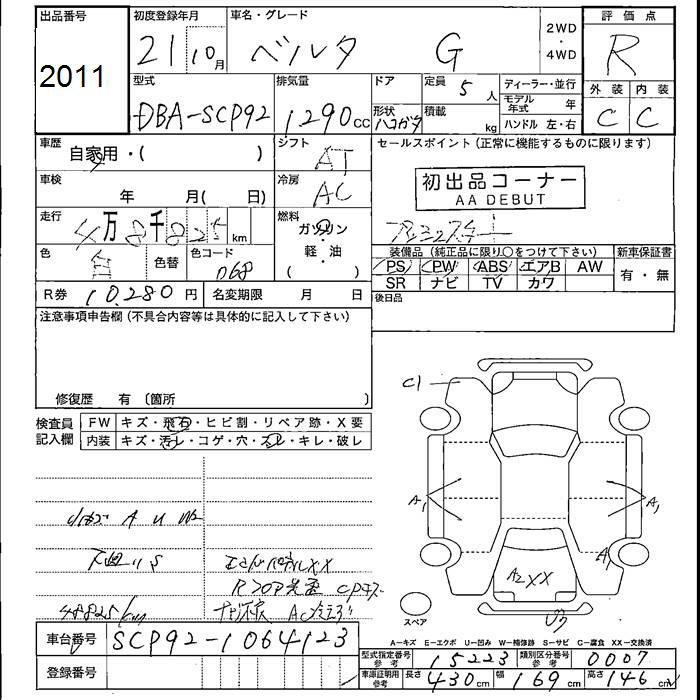 出品番号 初度登録年月 車名・グレード 2WD・4WD 評価点
2011 21 10月 ベルタ G R
型式 排気量 ドア 定員 5人 ディーラー・並行 外装 内装
DBA-SCP92 1290cc 形状 ハコガタ 積載 kg モデル年式 年 C C
ハンドル 左・右
車歴 自家用・( ) シフト AT セールスポイント(正常に機能するものに限ります)
車検 年 月( 日) 冷房 AC 初出品コーナー
AA DEBUT
走行 4万8千825km 燃料 ガソリン・軽・油 ( )
色 白 色替 色コード 068 装備品(純正品に限り○をつけて下さい) 新車保証書
PS PW ABS エアB AW 有・無
SR ナビ TV カワ
R券 10,280円 名変期限 月 日 後日品
注意事項申告欄(不具合内容等は具体的に記入して下さい)
修復歴 有 〔箇所 〕
検査員記入欄 FW キズ・飛石・ヒビ割・リペア跡・X要
内装 キズ・汚レ・コゲ・穴・スレ・キレ・破レ
C1
A1 A1
A
A2 XX
48825km
スペア
A−キズ E−エクボ U−凹み W−補修跡 S−サビ C−腐食 XX−交換済
車台番号 SCP92-1064123
型式指定番号 参考 15223 類別区分番号 参考 0007
登録番号
車庫証明用 参考 長さ 430cm 幅 169cm 高さ 146cm